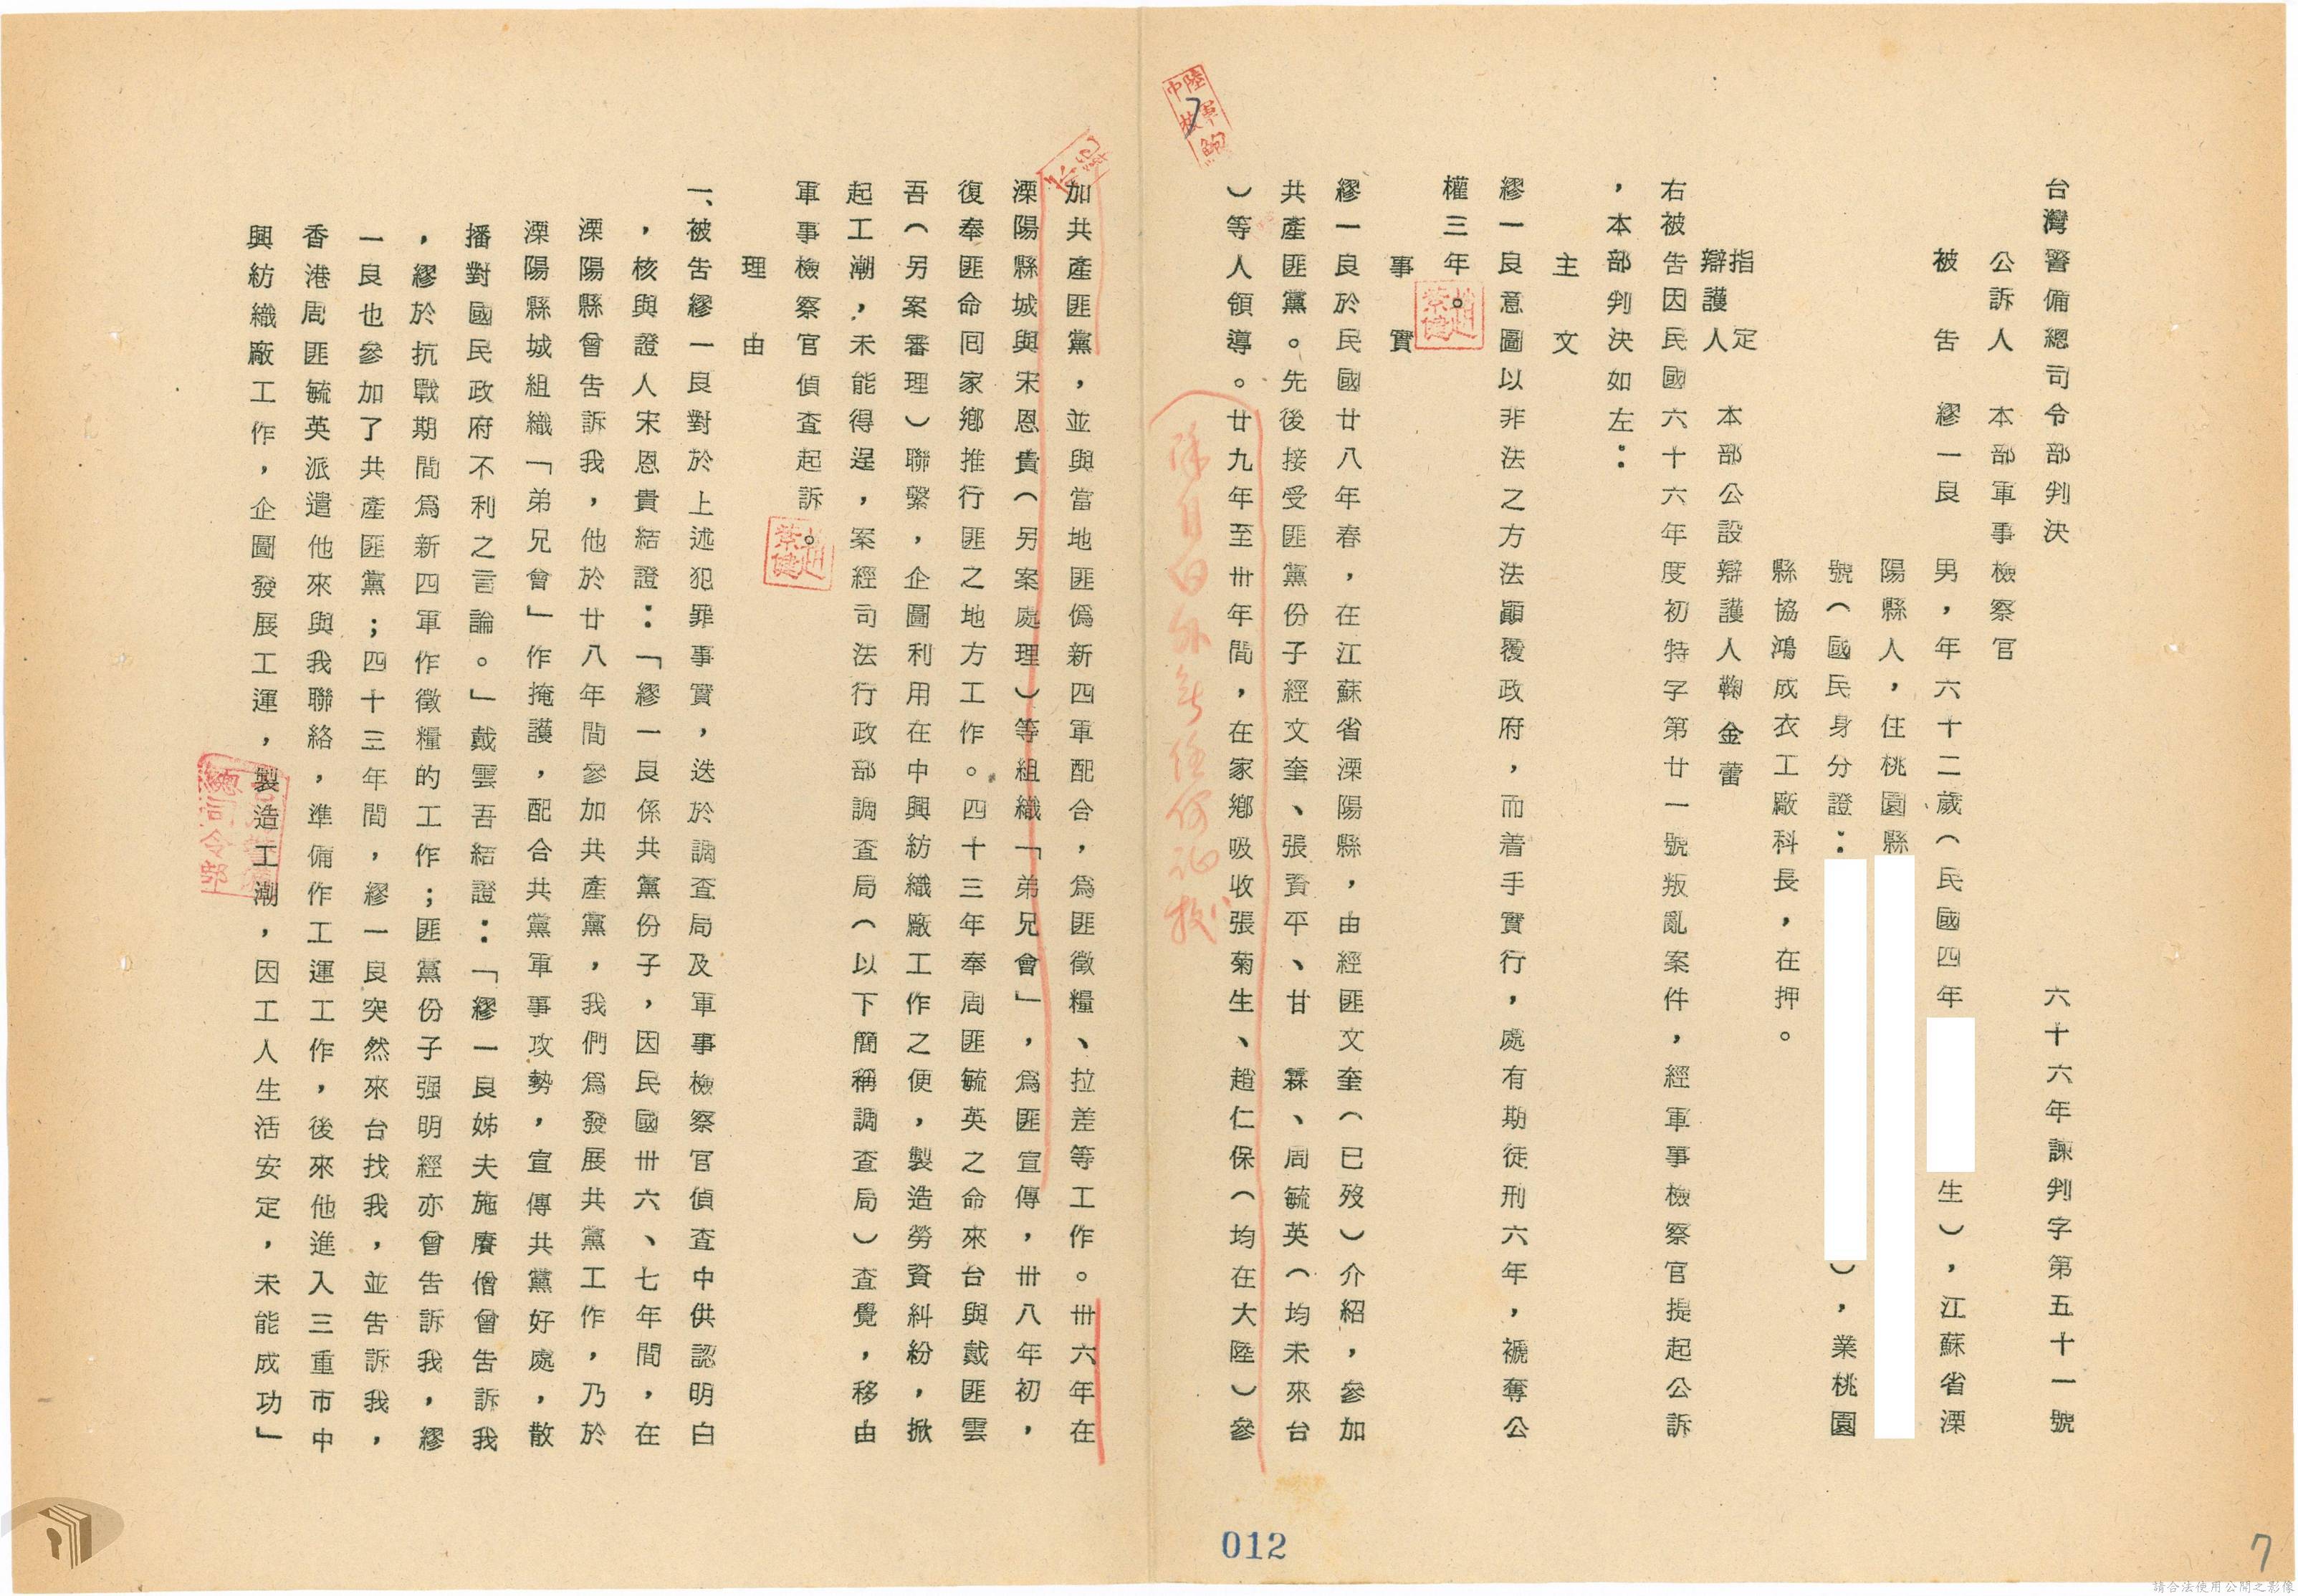 台灣警備總司令部判決　六十六年諫判字第五十一號
公訴人　本部軍事檢察官
被告　繆一良　男，年六十二歲（民國四年　生），江蘇省溧
陽縣人，住桃園縣
號（國民身分證：　），業桃園
縣協鴻成衣工廠科長，在押。
指定辯護人　本部公設辯護人鞠金蕾
右被告因民國六十六年度初特字第廿一號叛亂案件，經軍事檢察官提起公訴
，本部判決如左：
主文
繆一良意圖以非法之方法顚覆政府，而着手實行，處有期徒刑六年，褫奪公
權三年。
事實
繆一良於民國廿八年春，在江蘇省溧陽縣，由經匪文奎（已歿）介紹，參加
共產匪黨。先後接受匪黨份子經文奎、張資平、甘霖、周毓英（均未來台
）等人領導。廿九年至卅年間，在家鄉吸收張菊生、趙仁保（均在大陸）參
除自白外無任何証據
加共產匪黨，並與當地匪僞新四軍配合，爲匪徵糧、拉差等工作。卅六年在
溧陽縣城與宋恩貴（另案處理）等組織「弟兄會」，爲匪宣傳，卅八年初，
復奉匪命回家鄉推行匪之地方工作。四十三年奉周匪毓英之命來台與戴匪雲
吾（另案審理）聯繫，企圖利用在中興紡織廠工作之便，製造勞資糾紛，掀
起工潮，未能得逞，案經司法行政部調查局（以下簡稱調查局）查覺，移由
軍事檢察官偵查起訴。
理由
一、被告繆一良對於上述犯罪事實，迭於調查局及軍事檢察官偵查中供認明白
，核與證人宋恩貴結證：「繆一良係共黨份子，因民國卅六、七年間，在
溧陽縣曾告訴我，他於廿八年間參加共產黨，我們爲發展共黨工作，乃於
溧陽縣城組織「弟兄會」作掩護，配合共黨軍事攻勢，宣傳共黨好處，散
播對國民政府不利之言論。」戴雲吾結證：「繆一良姊夫施賡僧曾告訴我
，繆於抗戰期間爲新四軍作徵糧的工作；匪黨份子强明經亦曾告訴我，繆
一良也參加了共產匪黨；四十三年間，繆一良突然來台找我，並告訴我，
香港周匪毓英派遣他來與我聯絡，準備作工運工作，後來他進入三重市中
興紡織廠工作，企圖發展工運，製造工潮，因工人生活安定，未能成功」
012
7
請合法使用公開之影像